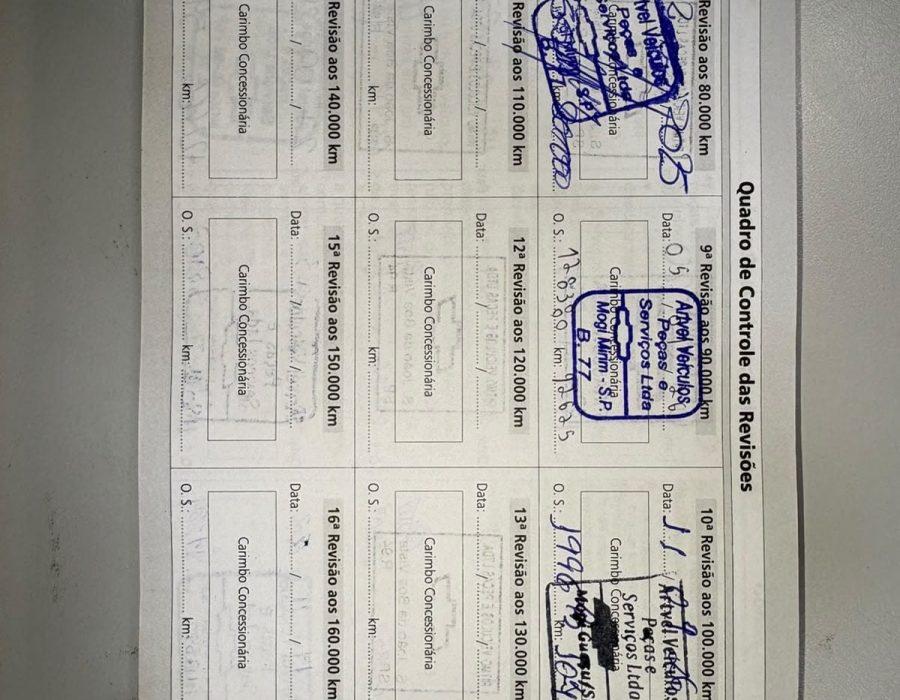 Quadro de Controle das Revisões
Revisão aos 80.000 km
2025
Carimbo Concessionária
km:
9ª Revisão aos 90.000 km
Data: 05
Artvel Veículos
Peças e
Serviços Ltda
Carimbo Concessionária
Mogi Mirim - S.P.
B. 77
O. S.: 178300 km: 92625
10ª Revisão aos 100.000 km
Data: 11
Artvel Veículos
Peças e
Serviços Ltda
Carimbo Concessionária
Mogi Guaçu
O. S.: km:
Revisão aos 110.000 km
Carimbo Concessionária
km:
12ª Revisão aos 120.000 km
Data: / /
Carimbo Concessionária
O. S.: km:
13ª Revisão aos 130.000 km
Data: / /
Carimbo Concessionária
O. S.: km:
Revisão aos 140.000 km
Carimbo Concessionária
km:
15ª Revisão aos 150.000 km
Data: / /
Carimbo Concessionária
O. S.: km:
16ª Revisão aos 160.000 km
Data: / /
Carimbo Concessionária
O. S.: km: